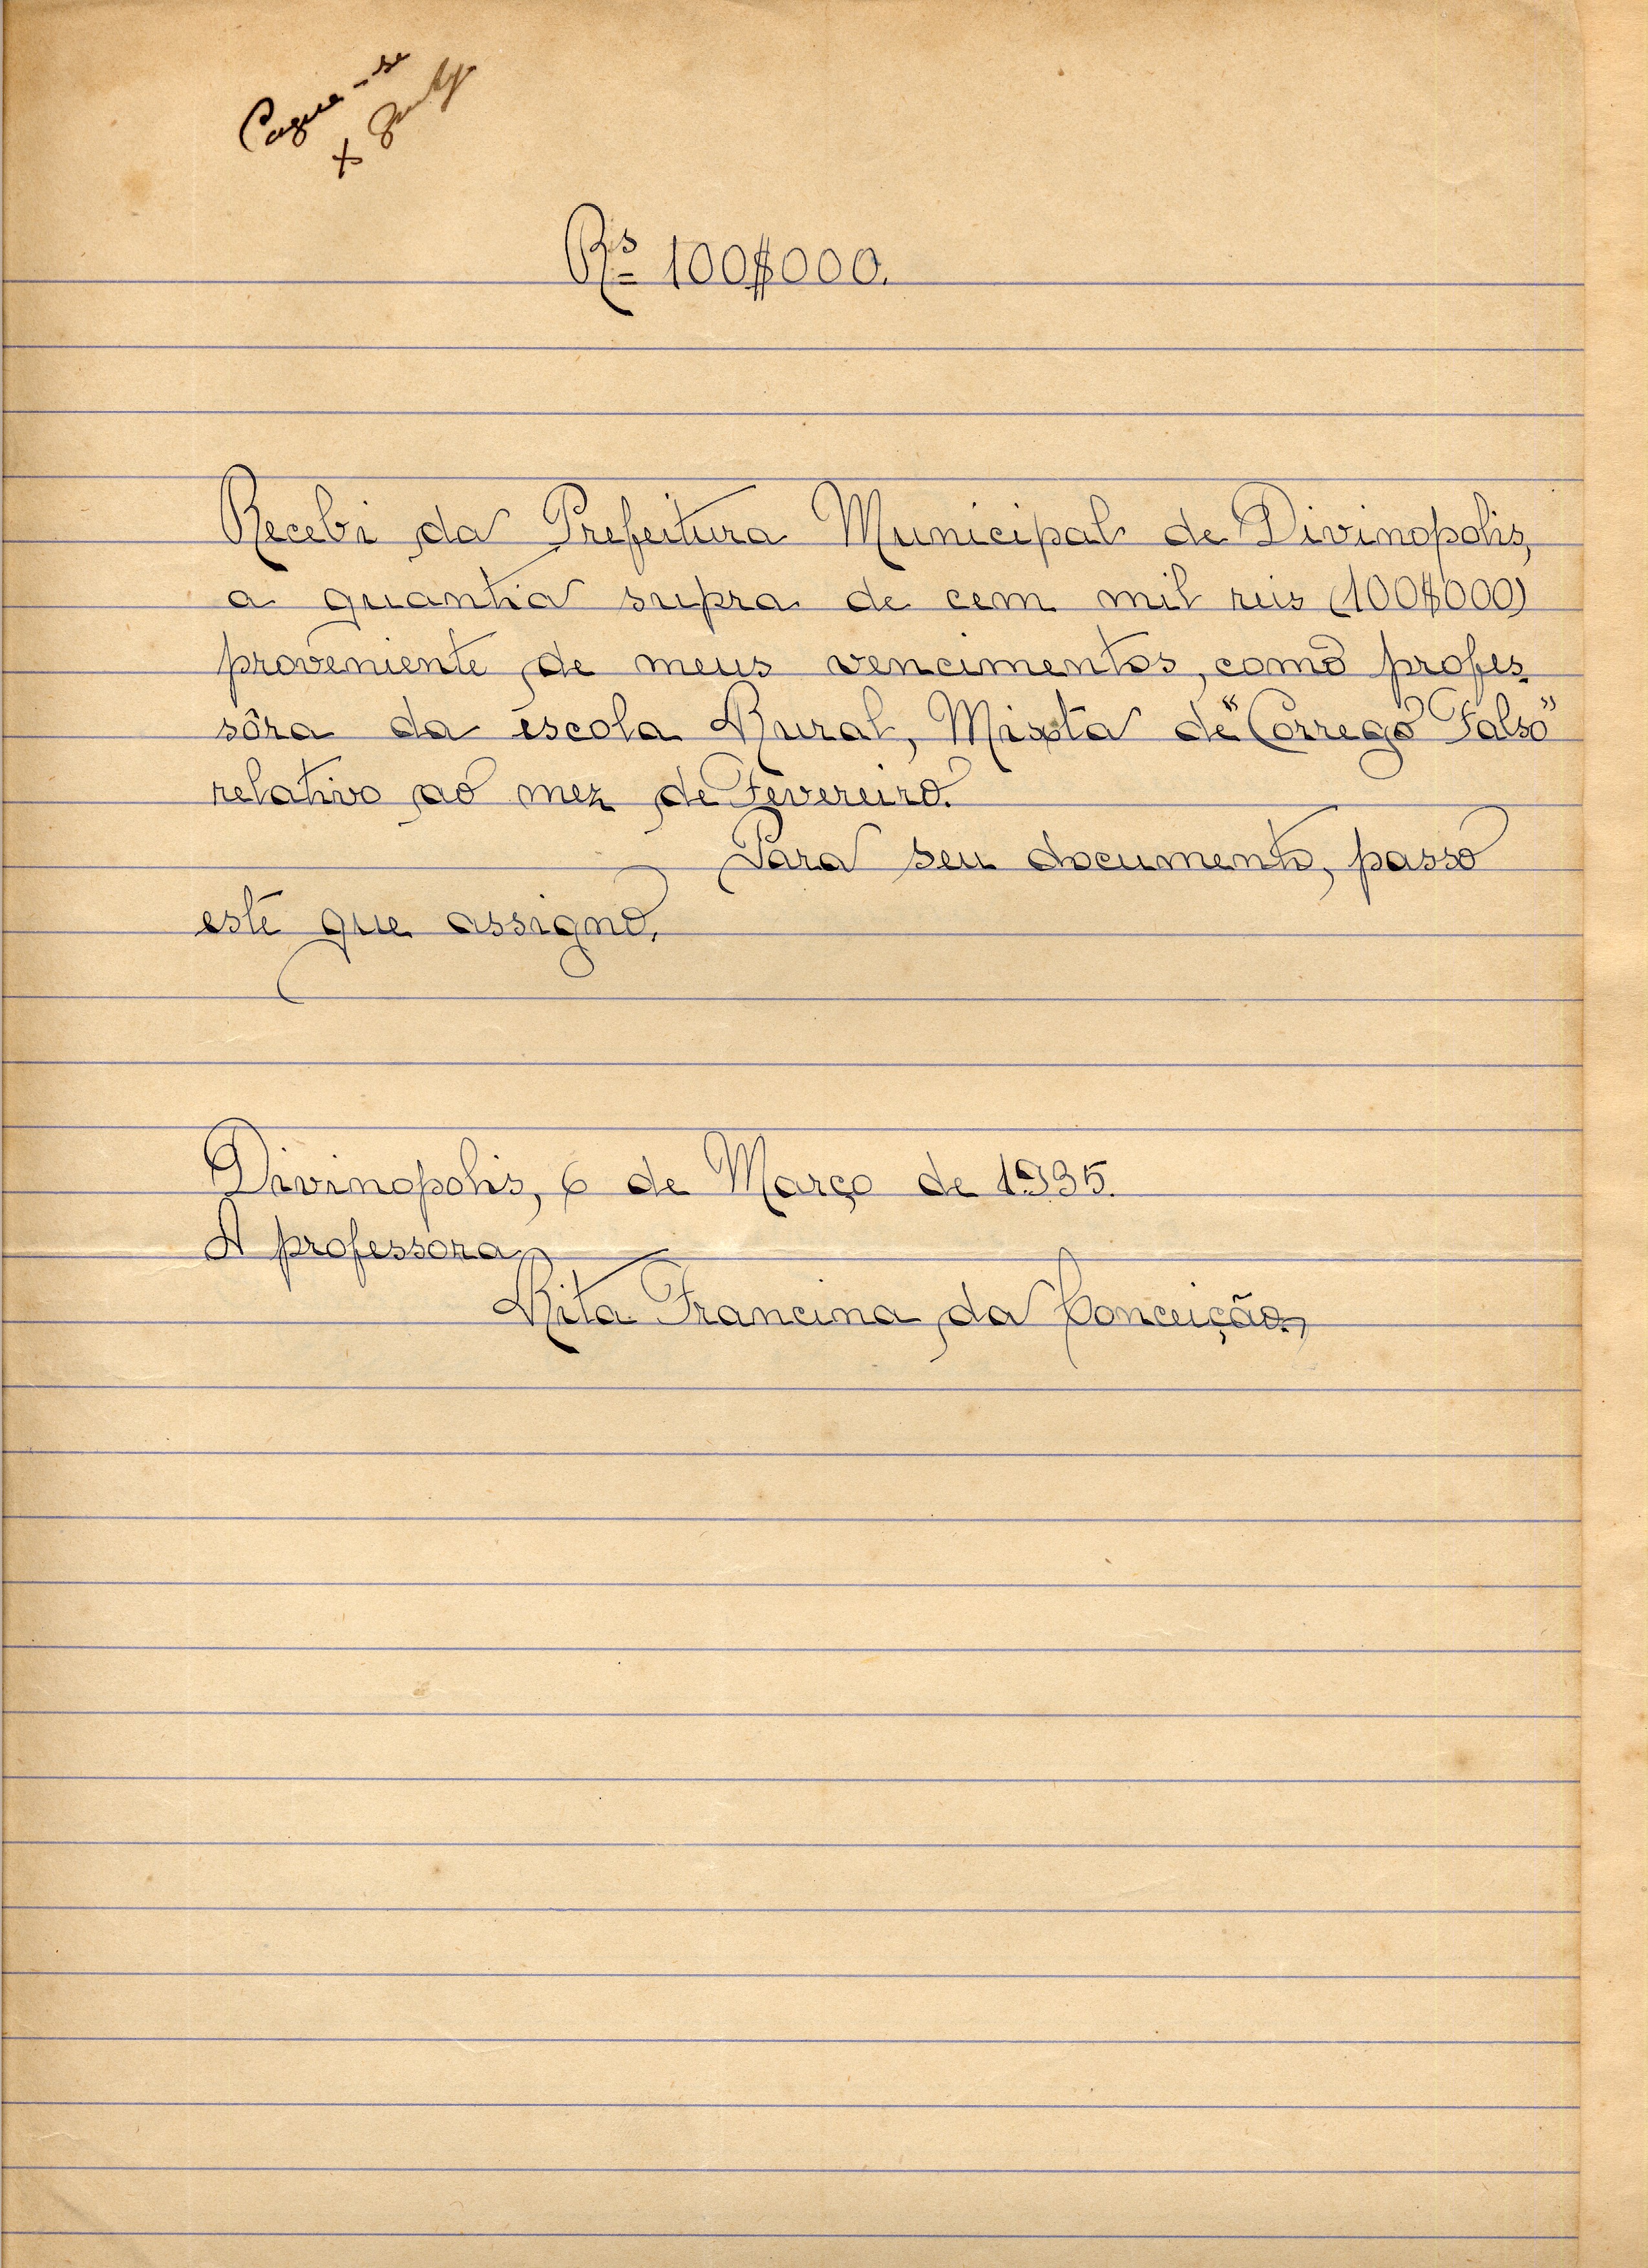 Pague-se
Rs 100$000.
Recebi da Prefeitura Municipal de Divinopolis,
a quantia supra de cem mil reis (100$000)
proveniente de meus vencimentos, como profes-
sôra da escola Rural, Mixta de "Corrego Falso"
relativo ao mez de Fevereiro.
Para seu documento, passo
este que assigno.
Divinopolis, 6 de Março de 1935.
A professora
Rita Francina da Conceição,